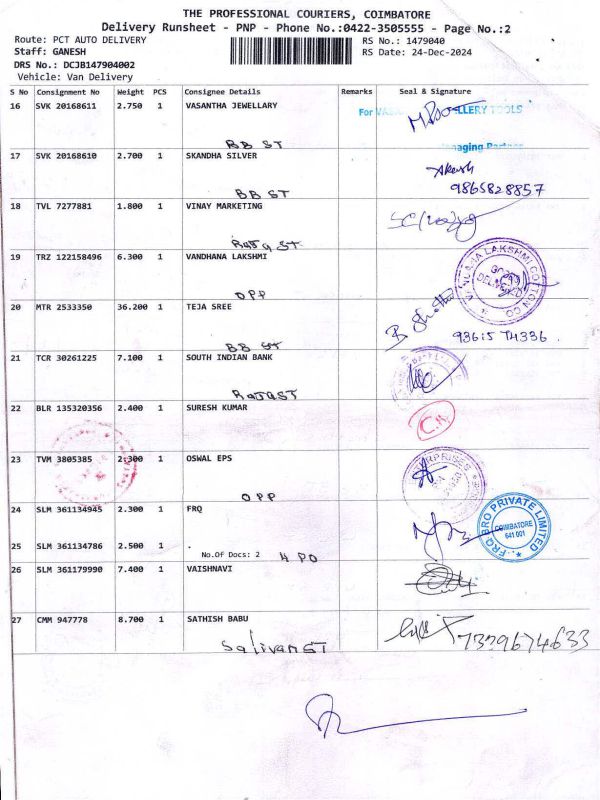 THE PROFESSIONAL COURIERS, COIMBATORE
Delivery Runsheet - PNP - Phone No.:0422-3505555 - Page No.:2
Route: PCT AUTO DELIVERY RS No.: 1479040
Staff: GANESH RS Date: 24-Dec-2024
DRS No.: DCJB147904002
Vehicle: Van Delivery
S No Consignment No Weight PCS Consignee Details Remarks Seal & Signature
16 SVK 20168611 2.750 1 VASANTHA JEWELLARY
For VASA ELLERY TOOLS
BB ST
anaging Partner
17 SVK 20168610 2.700 1 SKANDHA SILVER
Akash
BB ST 9865828857
18 TVL 7277881 1.800 1 VINAY MARKETING
RaJa ST
19 TRZ 122158496 6.300 1 VANDHANA LAKSHMI
LAKSHMI COTTON CO
GOODS
DELIVERED
OPP
20 MTR 2533350 36.200 1 TEJA SREE
BB ST
21 TCR 30261225 7.100 1 SOUTH INDIAN BANK
RaJaST
22 BLR 135320356 2.400 1 SURESH KUMAR
23 TVM 3805385 2.300 1 OSWAL EPS
OPP
24 SLM 361134945 2.300 1 FRQ
FRQ BRO PRIVATE LIMITED
COIMBATORE
641 001
25 SLM 361134786 2.500 1 .
No.Of Docs: 2 H PO
26 SLM 361179990 7.400 1 VAISHNAVI
27 CMM 947778 8.700 1 SATHISH BABU
SalivanST 7339674633